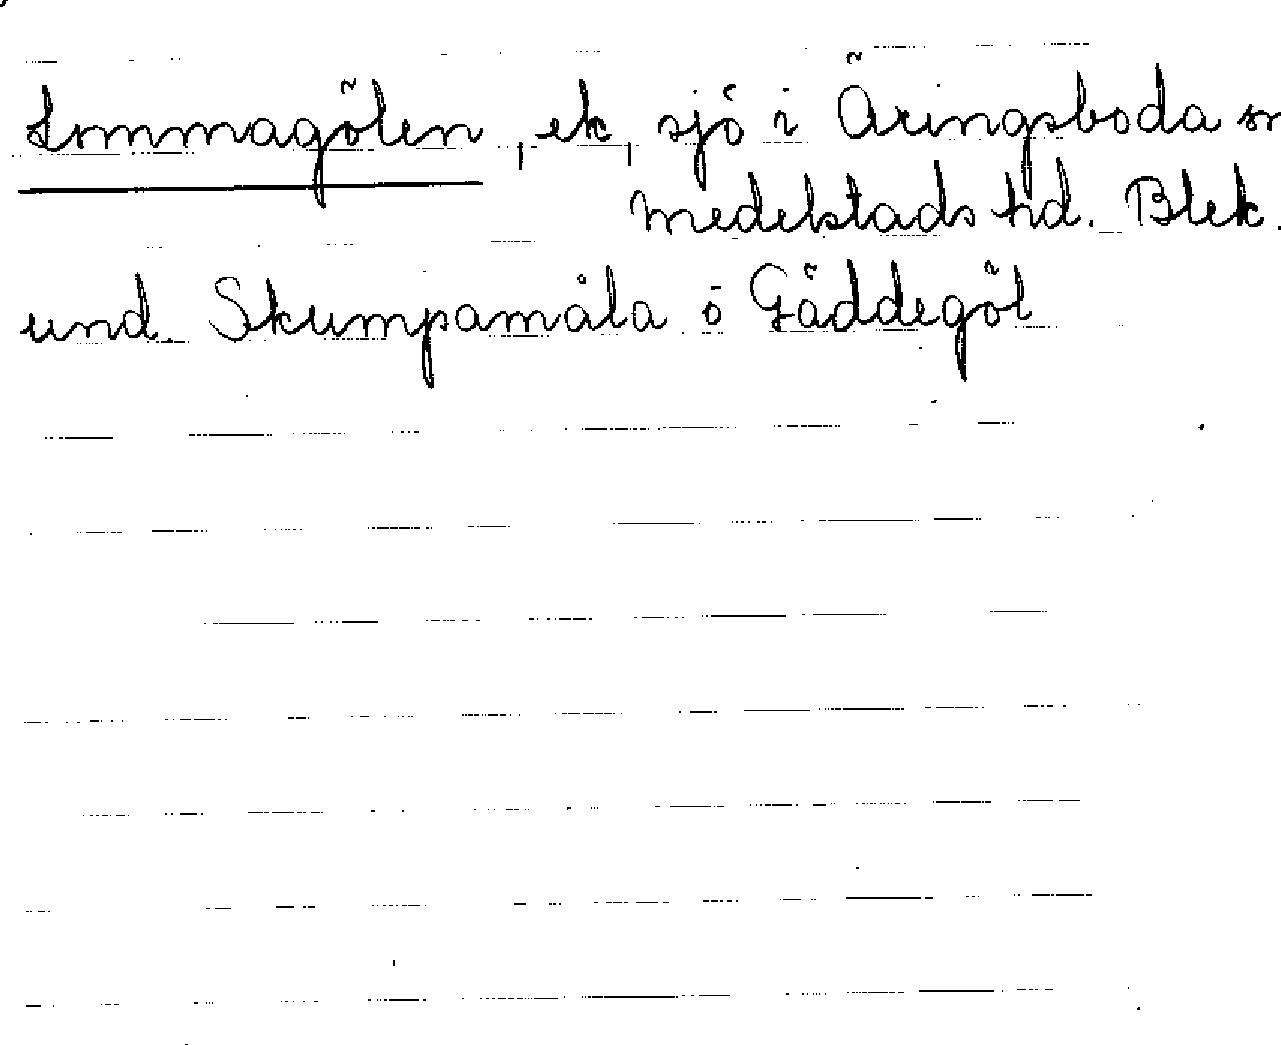 Lommagölen, ek, sjö i Öringsboda sn
Medelstads hd. Blek.
und. Skumpamåla o Gäddegöl